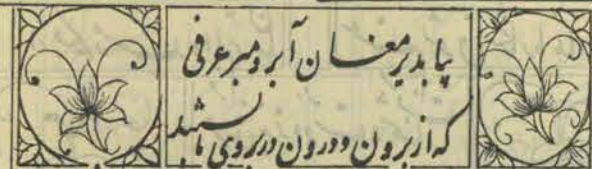 بیا بدیر مغان آبرو مبر عرفی
که از برون و درون در بروی ما بستند